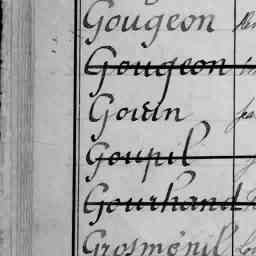 Gougeon
Gougeon
Gouin
Goupil
Gourhand
Grosménil